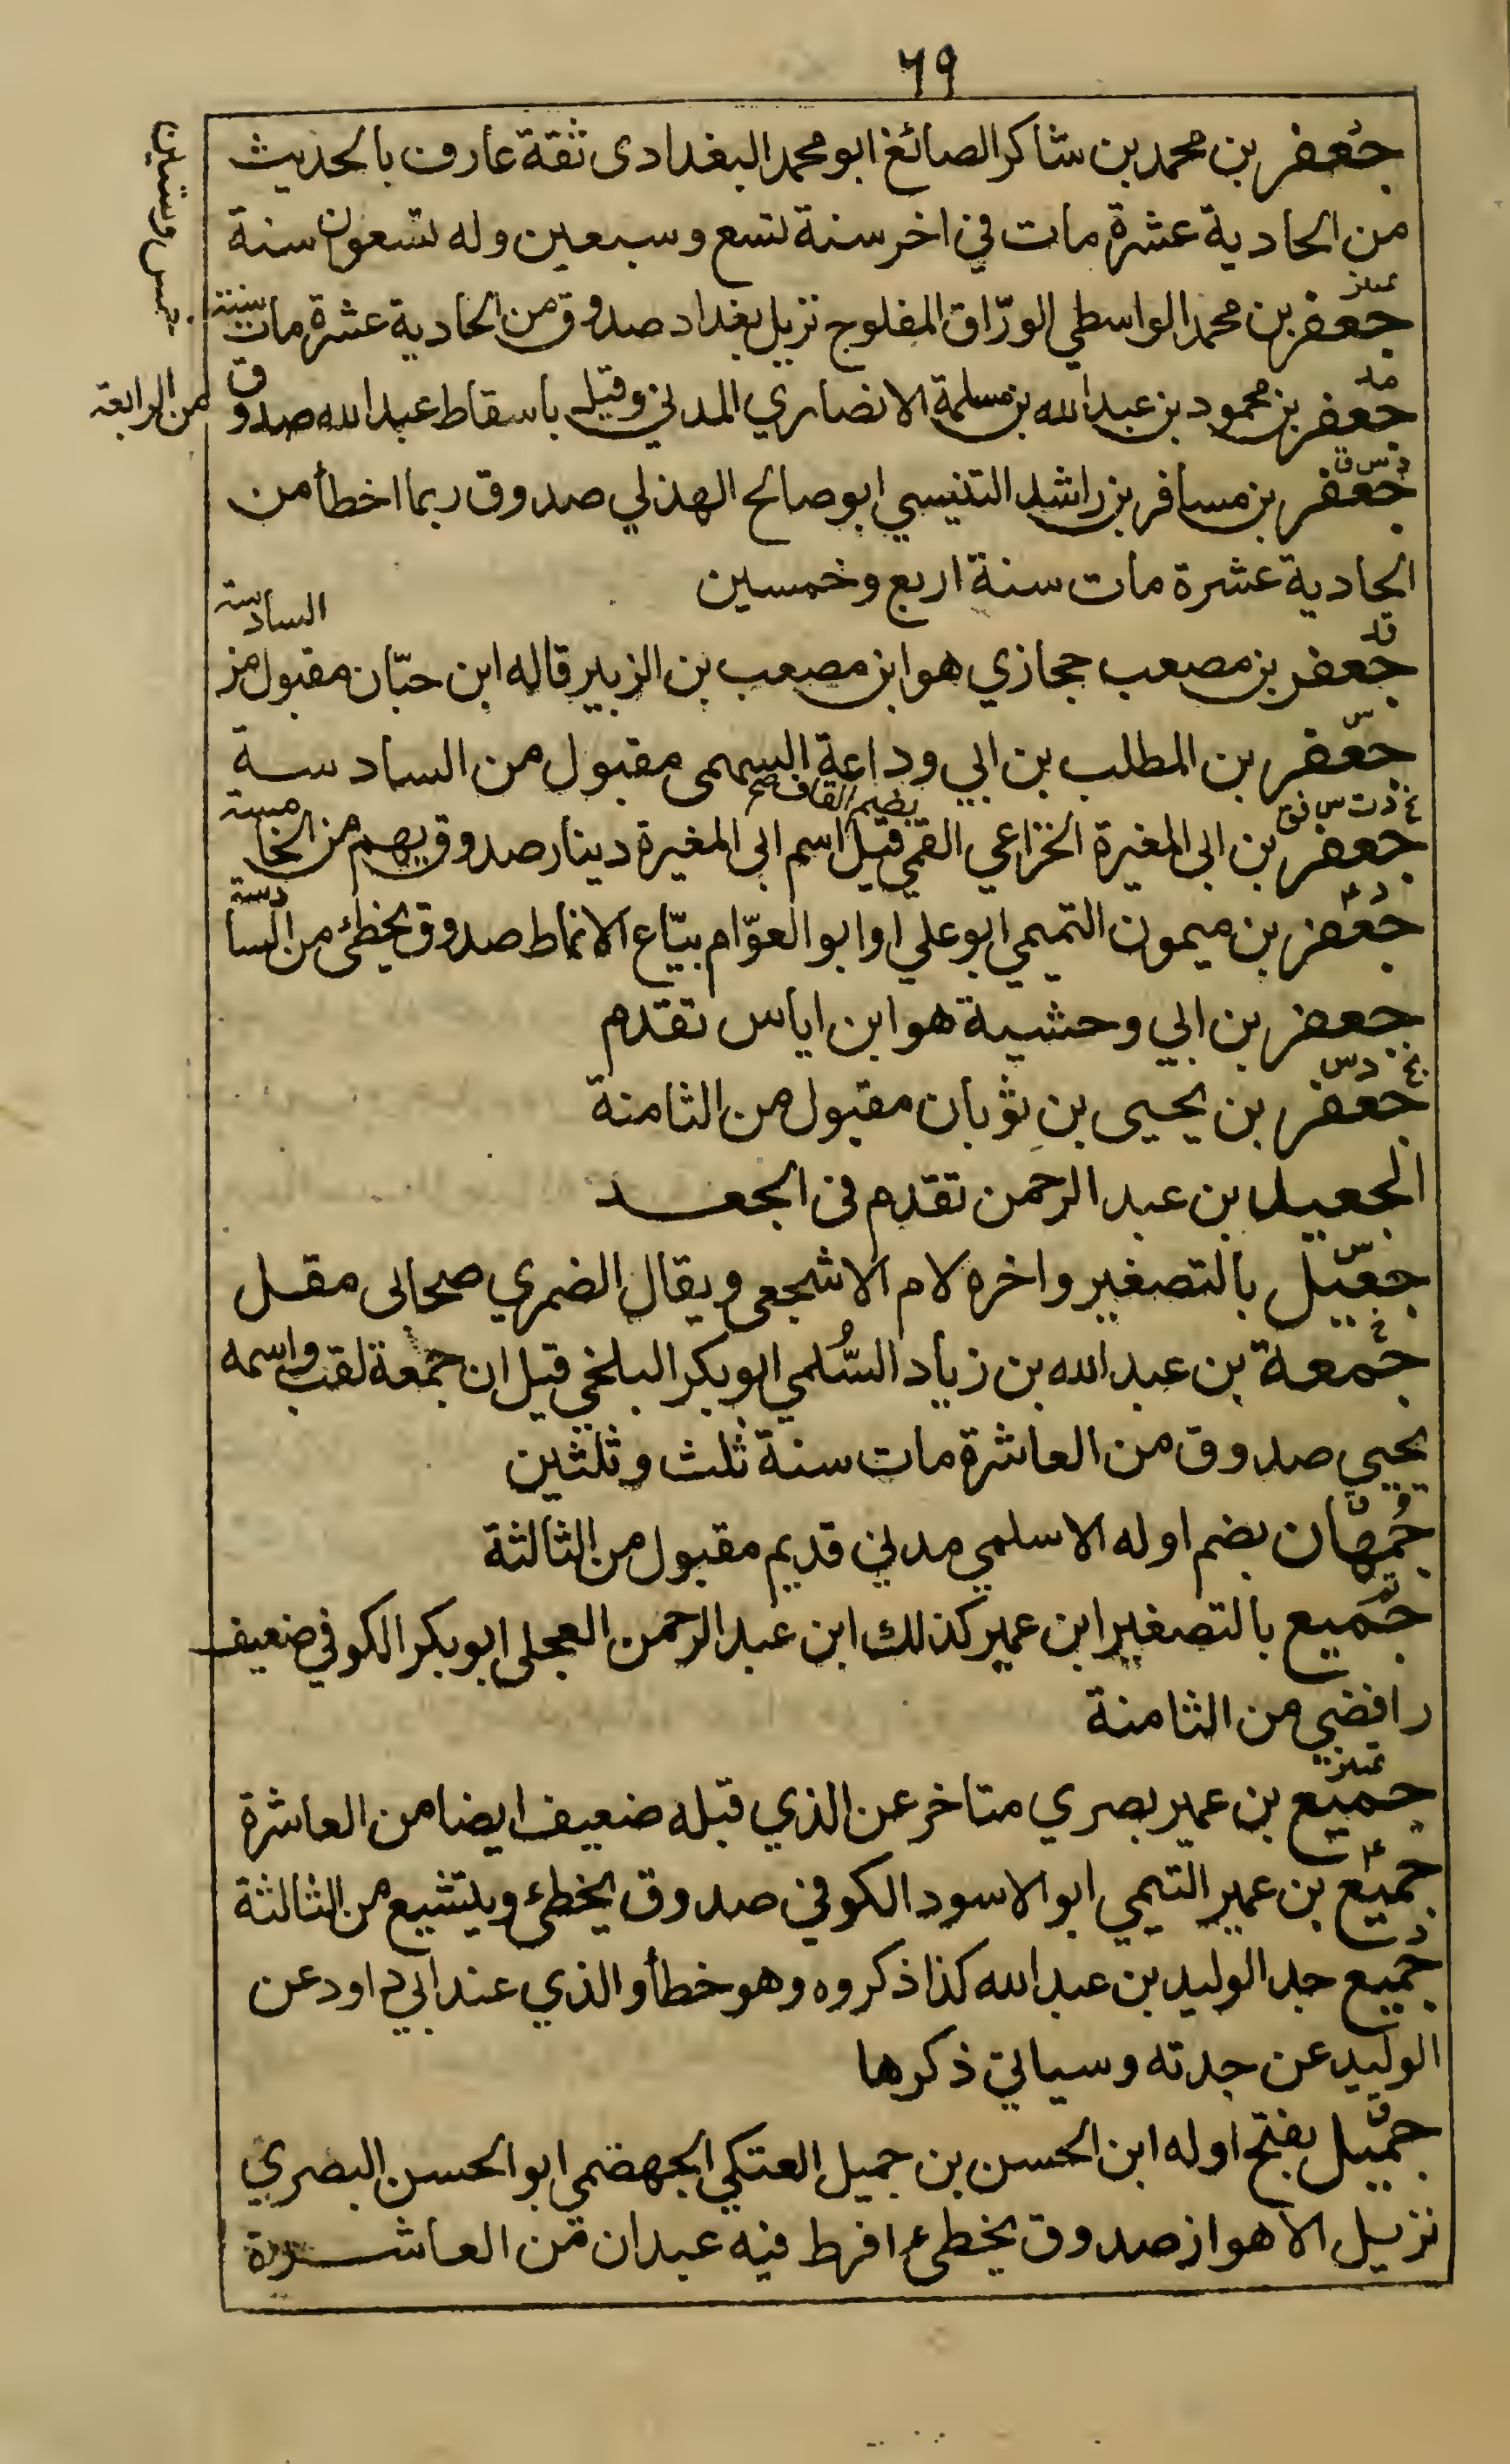 ٦٩
جعفر بن محمد بن شاكر الصائغ ابو محمد البغدادى ثقة عارف بالحديث
من الحادية عشرة مات في اخر سنة تسع وسبعين وله تسعون سنة
تمييز
جعفر بن محمد الواسطي الورّاق المفلوج نزيل بغداد صدوق من الحادية عشرة مات سنة
خمس وستين
جعفر بن محمود بن عبد الله بن مسلمة الانصاري المدني وقيل باسقاط عبد الله صدوق
من الرابعة
د س ق
جعفر بن مسافر بن راشد التنيسي ابو صالح الهذلي صدوق ربما اخطأ من
الحادية عشرة مات سنة اربع وخمسين
قد
جعفر بن مصعب حجازي هو ابن مصعب بن الزبير قاله ابن حبّان مقبول من السادسة
س
جعفر بن المطلب بن ابي وداعة السهمى مقبول من السادسة
بضم القاف صح
جعفر بن ابى المغيرة الخزاعي القمي قيل اسم ابى المغيرة دينار صدوق يهم من الخامسة
ر ٤
جعفر بن ميمون التميمي ابو علي او ابو العوّام بيّاع الانماط صدوق يخطئ من السادسة
جعفر بن ابي وحشية هو ابن اياس تقدم
بخ د س
جعفر بن يحيى بن ثوبان مقبول من الثامنة
الجعيد بن عبد الرحمن تقدم فى الجعد
س
جعيل بالتصغير واخره لام الاشجعى ويقال الضمري صحابى مقل
خ
جمعة بن عبد الله بن زياد السُلمي ابو بكر البلخي قيل ان جمعة لقب واسمه
يحيي صدوق من العاشرة مات سنة ثلث وثلثين
ت ق
جُمهان بضم اوله الاسلمي مدني قديم مقبول من الثالثة
تم
جميع بالتصغير ابن عمير كذلك ابن عبد الرحمن العجلى ابو بكر الكوفي ضعيف
رافضي من الثامنة
تمييز
جميع بن عمير بصري متاخر عن الذي قبله ضعيف ايضا من العاشرة
٤
جميع بن عمير التيمي ابو الاسود الكوفي صدوق يخطئ ويتشيع من الثالثة
د
جميع جد الوليد بن عبد الله كذا ذكروه وهو خطأ والذي عند ابي داود عن
الوليد عن جدته وسياتي ذكرها
ق
جميل بفتح اوله ابن الحسن بن جميل العتكي الجهضمي ابو الحسن البصري
نزيل الاهواز صدوق يخطئ افرط فيه عبدان من العاشرة